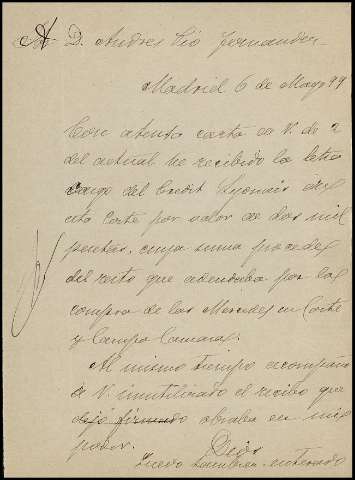 Sr. D. Andres Pio Fernandez
Madrid 6 de Mayo 99
Con atenta carta de V. de 2
del actual he recibido la letra
cargo del Credit Lyonais de
esta Corte por valor de dos mil
pesetas, cuya suma procede
del resto que adeudaba por la
compra de las Mercedes en Corte
y Campo Camaras.
Al mismo tiempo acompaño
a V. inutilizado el recibo que
dejó firmado obraba en mi
poder.
Quedo tambien enterado